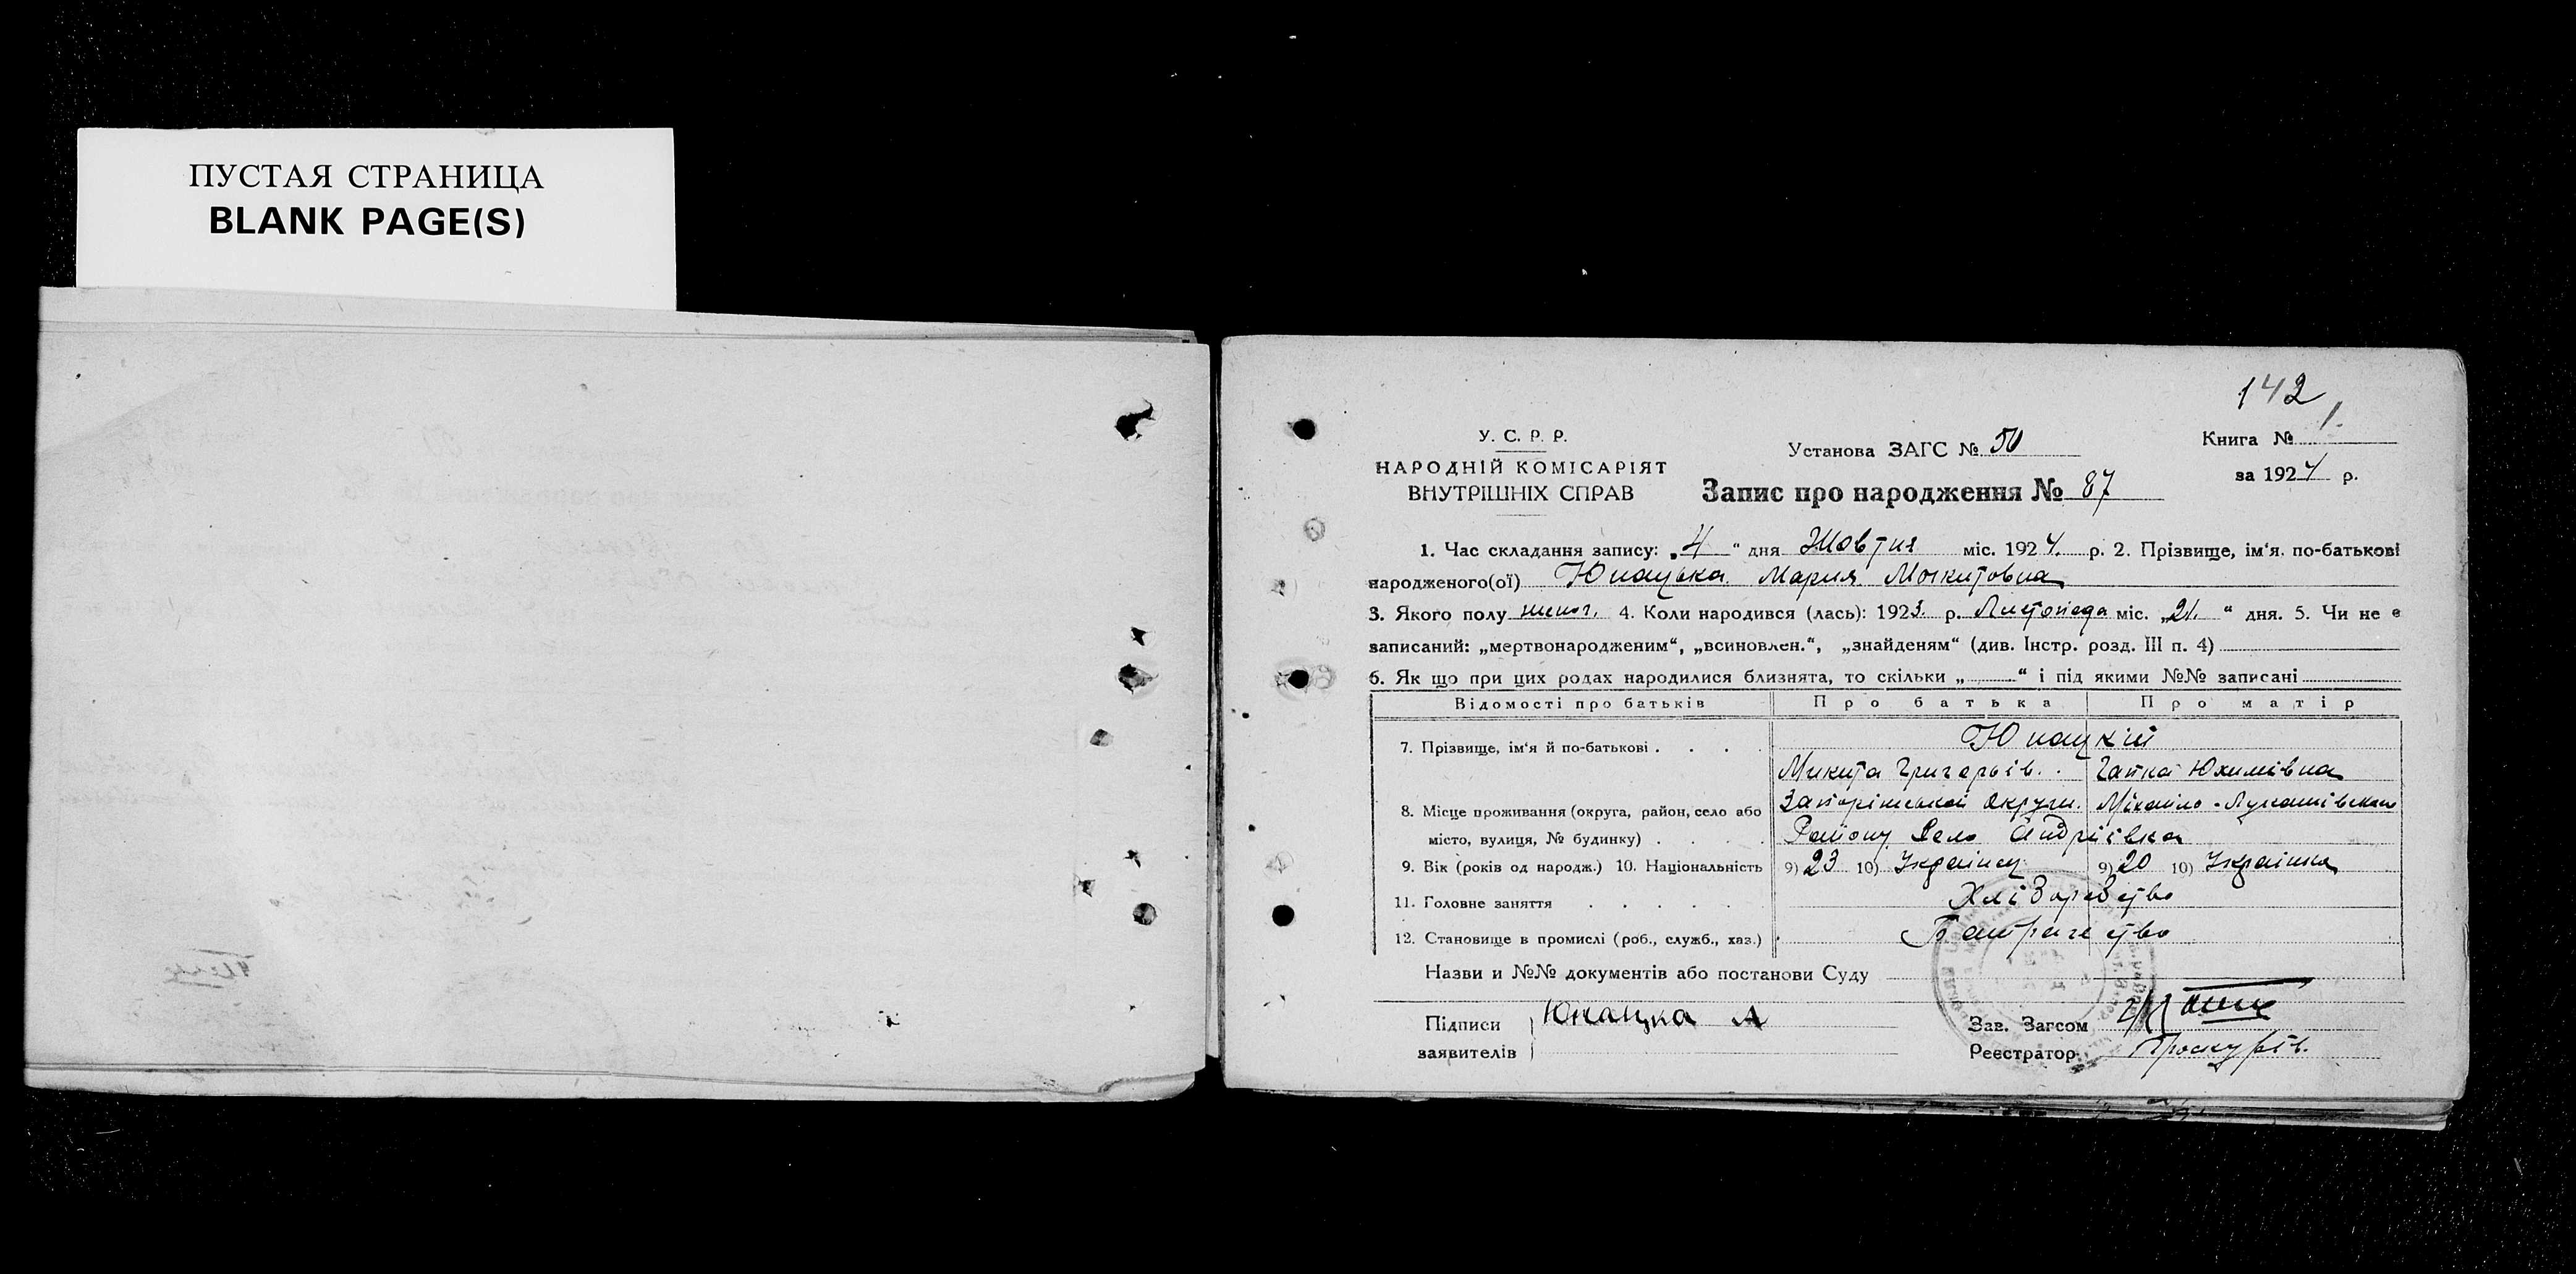 ПУСТАЯ СТРАНИЦА
BLANK PAGE(S)
142
У. С. Р. Р.
НАРОДНІЙ КОМІСАРІЯТ
ВНУТРІШНІХ СПРАВ
Установа ЗАГС № 50
Запис про народження № 87
Книга № 1.
за 1924 р.
1. Час складання запису: „4“ дня Жовтня міс. 1924. р. 2. Прізвище, ім‘я. по-батькові
народженого(ої) Юнацька Мария Микитовна
3. Якого полу жіноч. 4. Коли народився (лась): 1923. р. Листопада міс. „21.“ дня. 5. Чи не є
записаний: „мертвонародженим“, „всиновлен.“, „знайденям“ (див. Інстр. розд. III п. 4)
6. Як що при цих родах народилися близнята, то скільки „ “ і під якими №№ записані
Відомості про батьків Про батька Про матір
7. Прізвище, ім‘я й по-батькові . . . . Юнацкій
Микита Григорьів. Гапка Юхимівна
8. Місце проживання (округа, район, село або Запоріжської Округи. Міхайло-Лукашівского
місто, вулиця, № будинку) . . . . Району Село Андріївка
9. Вік (років од народж.) 10. Національність 9) 23 10) Українец 9) 20 10) Українка
11. Головне заняття . . . . . Хліборобство
12. Становище в промислі (роб., служб., хаз.) Батрачество
Назви и №№ документів або постанови Суду
Підписи Юнацка А
заявителів
Зав. Загсом
Реєстратор